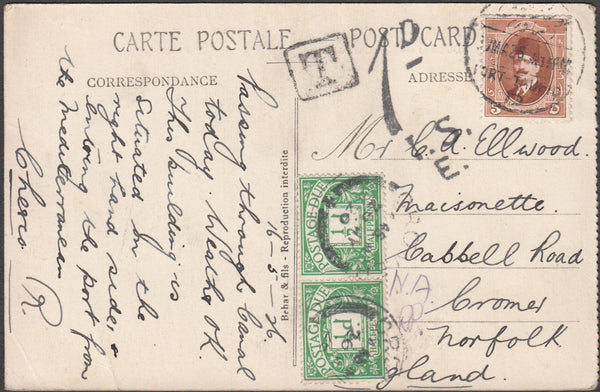 CARTE POSTALE
POST CARD
CORRESPONDANCE
ADRESSE
T
1D
16-5-26
Passing through Canal
today. Weather OK.
This building is
situated on the
right hand side,
entering the port from
the Mediterranean
Cheero R.
Behar & fils - Reproduction interdite
Mr C. A. Ellwood.
Maisonette.
Cabbell Road
Cromer
Norfolk
gland.
POSTAGE DUE
POSTAGE DUE
N.A.
5
5